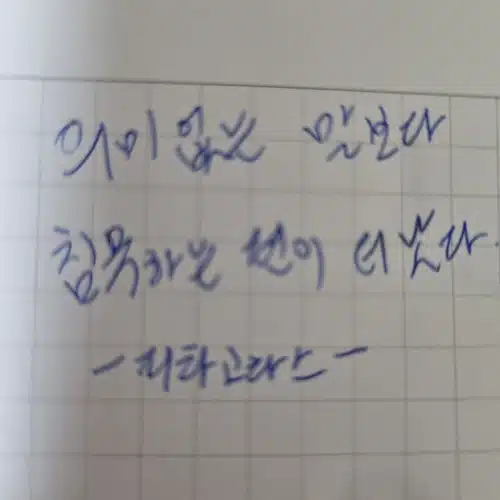 의미 없는 말보다
침묵하는 편이 더 낫다.
- 피타고라스 -